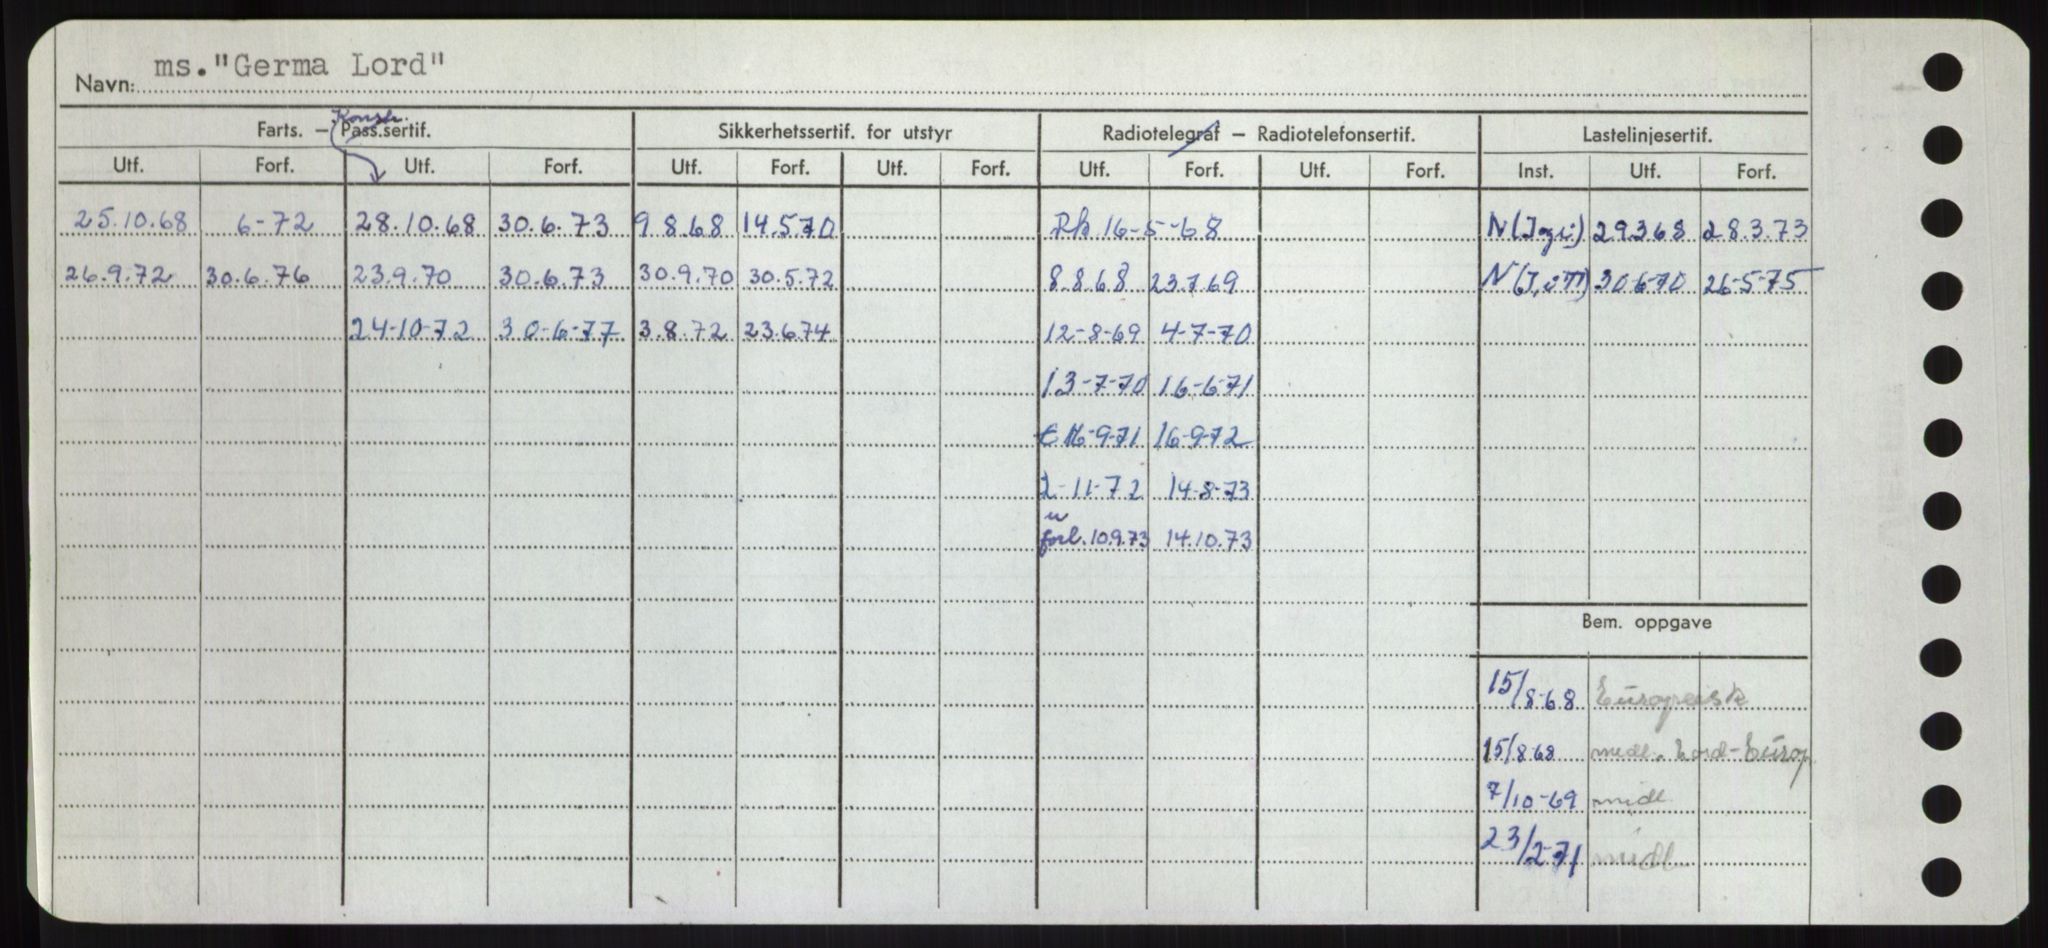 Navn: ms."Germa Lord"
Konstr.
Farts. – Pass.sertif. Sikkerhetssertif. for utstyr Radiotelegraf – Radiotelefonsertif. Lastelinjesertif.
Utf. Forf. Utf. Forf. Utf. Forf. Utf. Forf. Utf. Forf. Utf. Forf. Inst. Utf. Forf.
25.10.68 6-72 28.10.68 30.6.73 9.8.68 14.5.70 Rk 16-5-68 29.3.68 28.3.73
26.9.72 30.6.76 23.9.70 30.6.73 30.9.70 30.5.72 8.8.68 23.7.69 30-6-70 26-5-75
24-10-72 30-6-77 3.8.72 23.6.74 12-8-69 4-7-70
13-7-70 16-6-71
16-9-71 16-9-72
2-11-72 14-8-73
forl. 10.9.73 14.10.73
Bem. oppgave
15/8-68 Europeisk
15/8-68 midl. Nord-Europ.
7/10-69 midl.
23/2-71 midl.